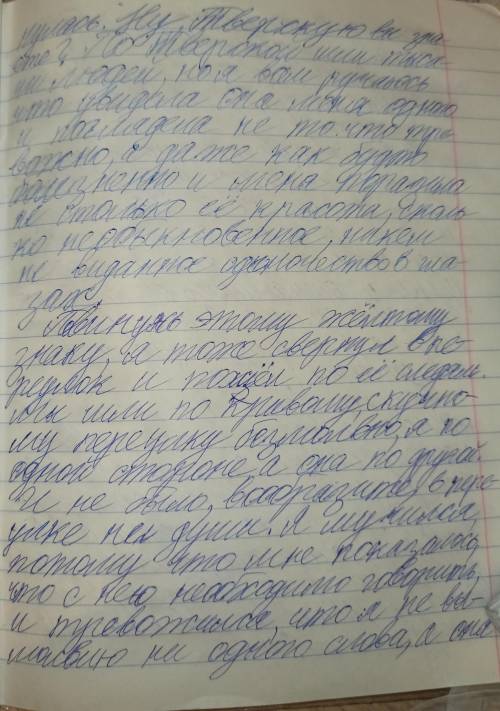 нулась. Ну, Тверскую вы зна-
ете? По Тверской шли тыся-
чи людей, но я вам ручаюсь
что увидела она меня одного
и поглядела не то, что тре-
вожно, а даже как будто
болезненно и меня поразила
не столько её красота, сколь
ко необыкновенное, никем
не виданное одиночество в гла-
зах.
Повинуясь этому жёлтому
знаку, я тоже свернул в пе-
реулок и пошёл по её следам.
Мы шли по кривому, скучно-
му переулку безмолвно, я по
одной стороне а она по другой.
И не было, вообразите, в пере
улке ни души. Я мучился,
потому что мне показалось,
что с нею необходимо говорить,
и тревожился, что я не вы-
молвлю ни одного слова, а она